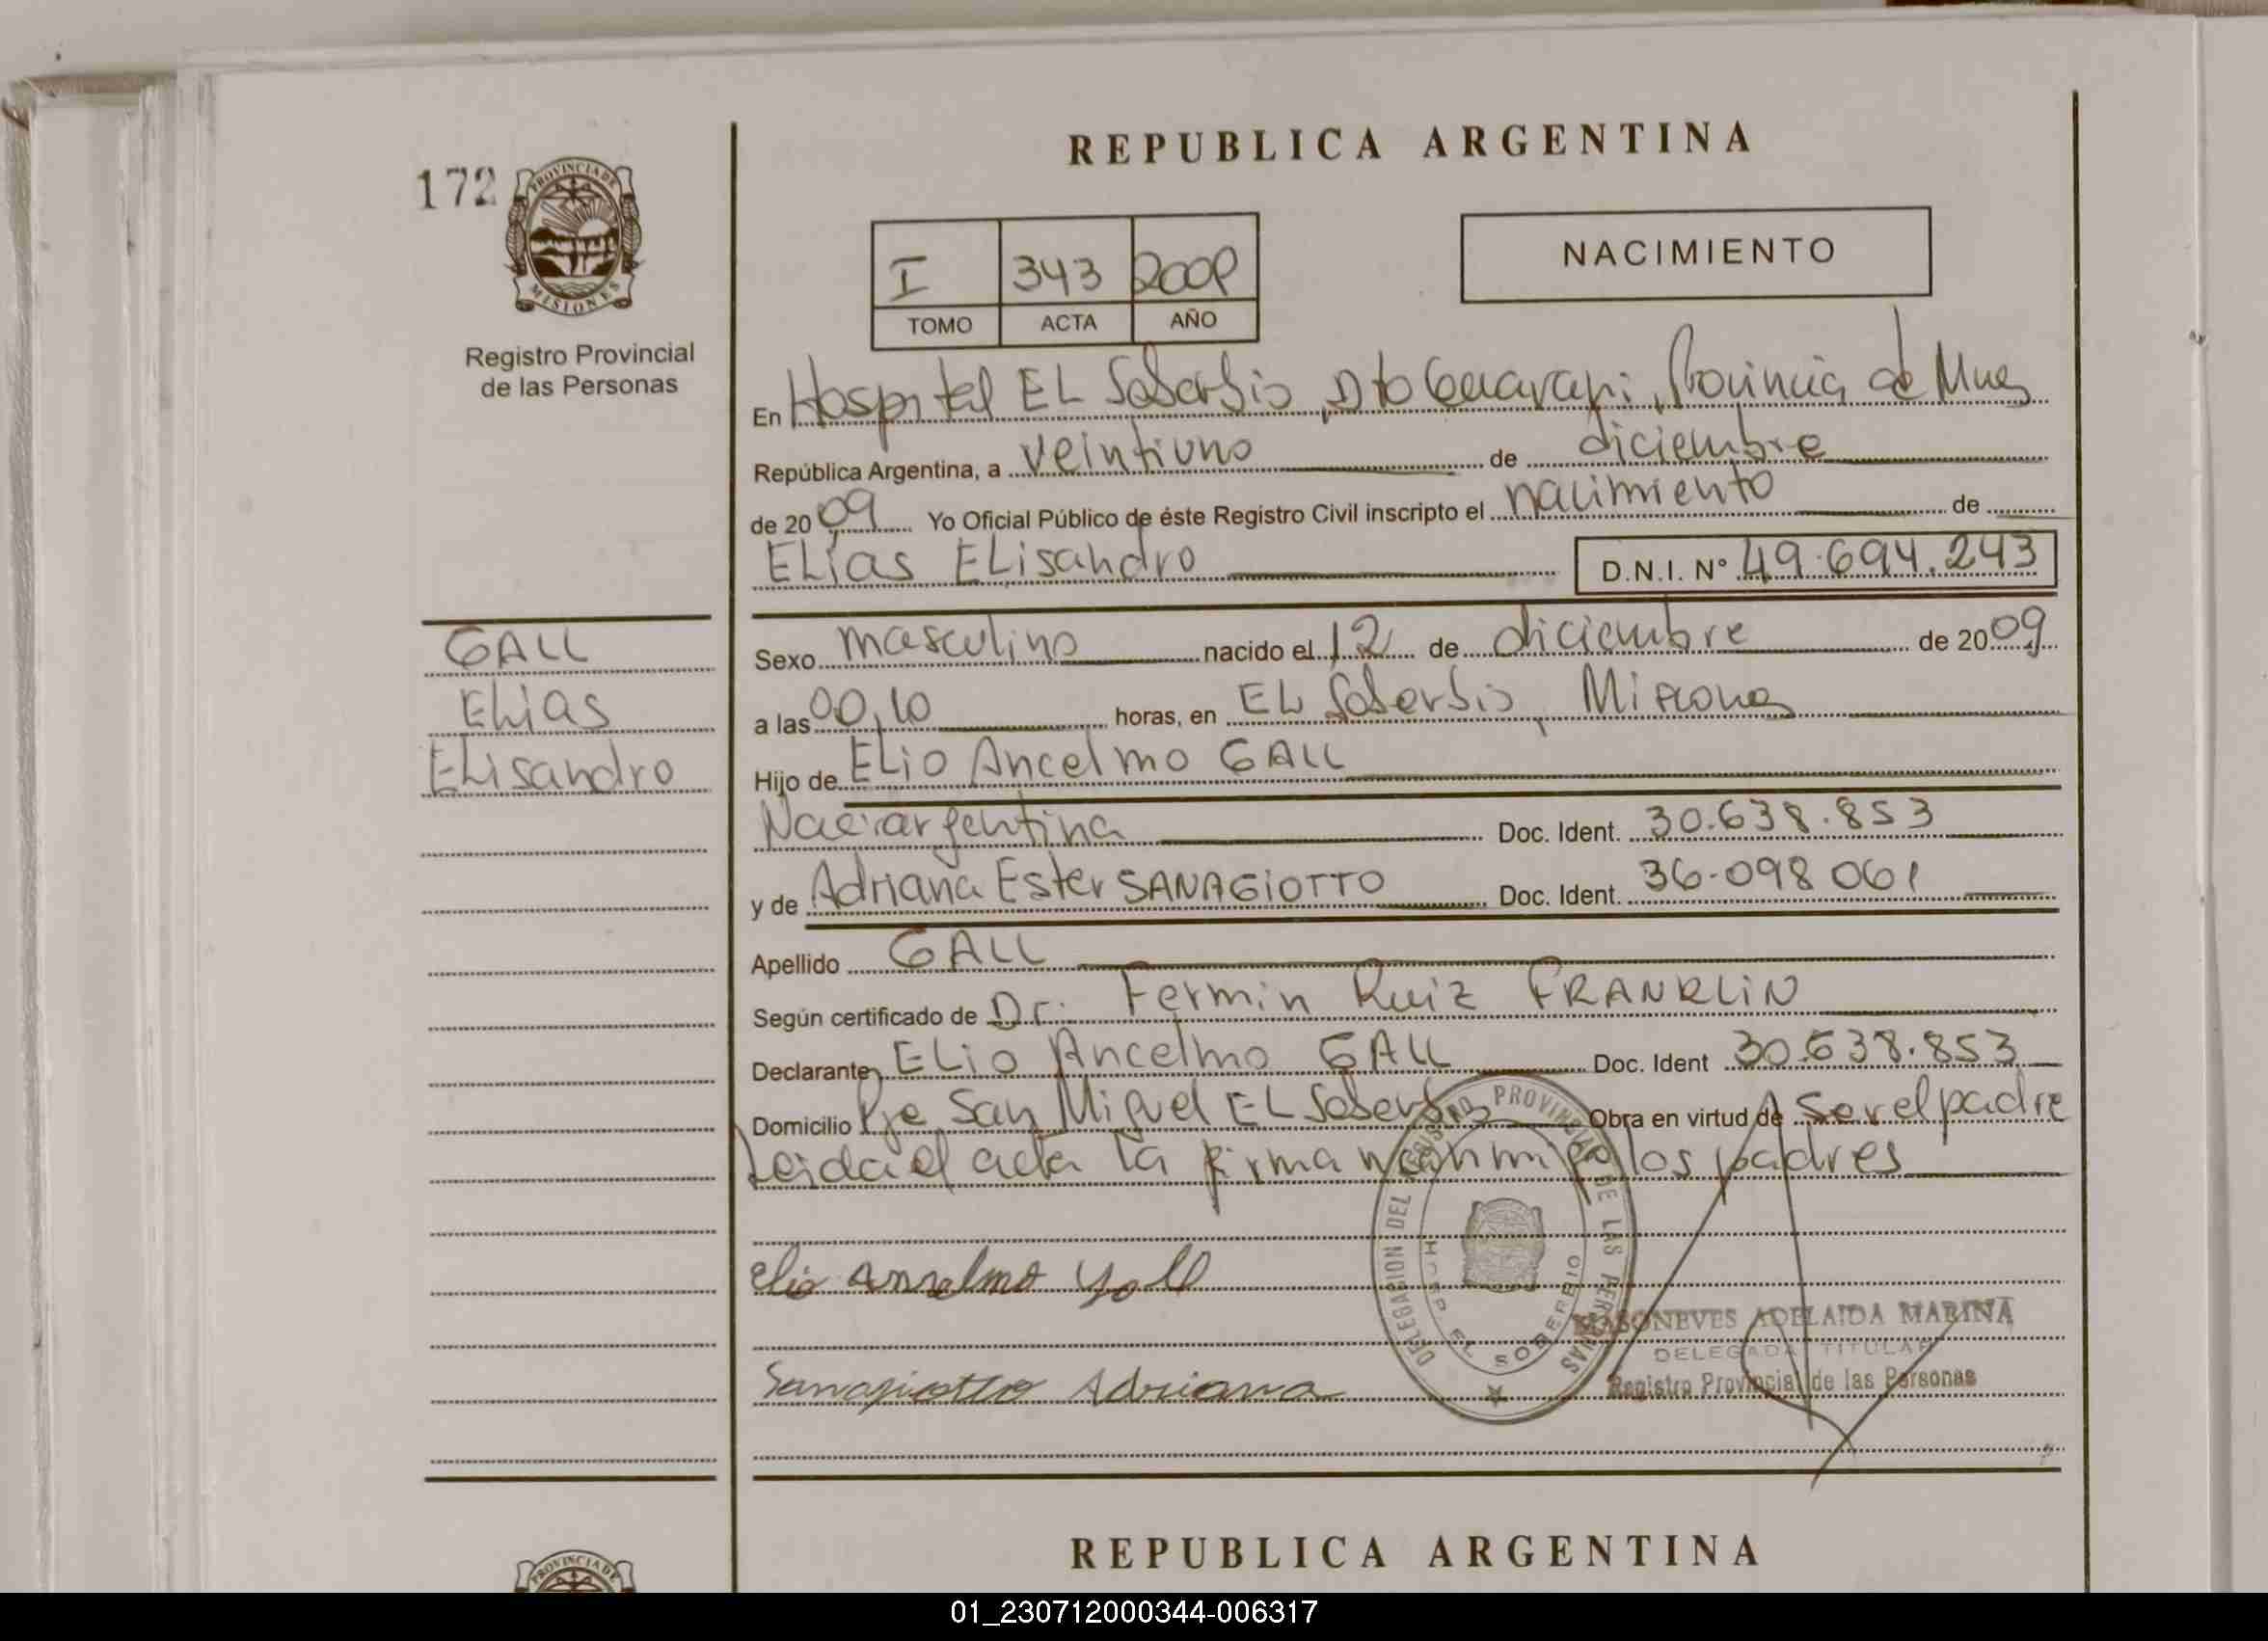 REPUBLICA ARGENTINA
172
PROVINCIA DE
MISIONES
Registro Provincial
de las Personas
I 343 2009
TOMO ACTA AÑO
NACIMIENTO
En Hospital EL Soberbio, Dto Guarani, Provincia de Mnes
República Argentina, a veintiuno de diciembre
de 2009 Yo Oficial Público de éste Registro Civil inscripto el nacimiento de
ELías ELisandro D.N.I. N° 49.694.243
GALL
Elias
Elisandro
Sexo masculino nacido el 12 de diciembre de 2009
a las 00,10 horas, en EL Soberbio, Misiones
Hijo de ELio Ancelmo GALL
Nac. argentina Doc. Ident. 30.638.853
y de Adriana Ester SANAGiOTTO Doc. Ident. 36.098 061
Apellido GALL
Según certificado de Dr. Fermin Ruiz FRANKLIN
Declarante ELio Ancelmo GALL Doc. Ident 30.638.853
Domicilio Pje San Miguel EL Soberbio Obra en virtud de Ser el padre
Leida el acta la firman conmigo los padres
elio anselmo gall
Sanagiotto Adriana
DELEGACION DEL REGISTRO PROVINCIAL DE LAS PERSONAS
HOSP EL SOBERBIO
ADELAIDA MARINA
DELEGADA TITULAR
Registro Provincial de las Personas
REPUBLICA ARGENTINA
PROVINCIA DE
01_230712000344-006317